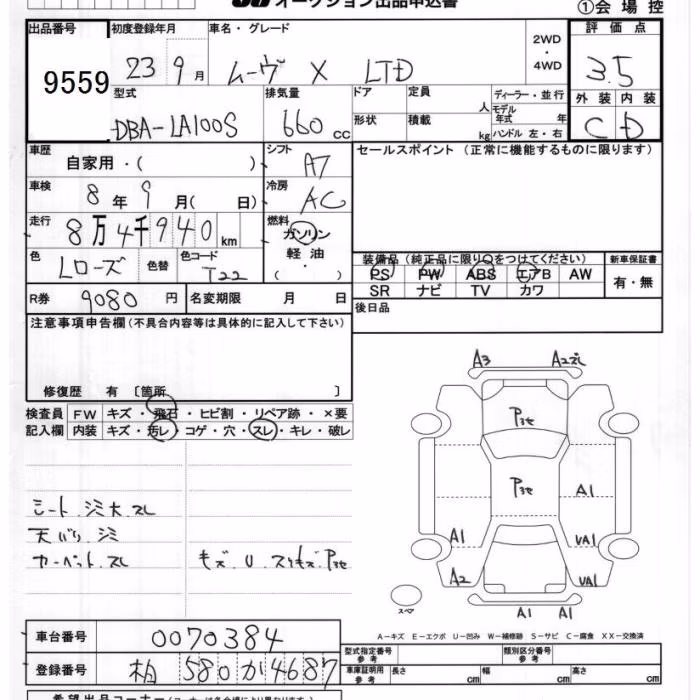 オークション出品申込書 ①会場控
出品番号 初度登録年月 車名・グレード 2WD・4WD 評価点
9559 23 9月 ムーヴ X LTD 3.5
型式 排気量 ドア 定員 人 ディーラー・並行 外装 内装
DBA-LA100S 660cc 形状 積載 kg モデル年式 年 ハンドル 左・右 C D
車歴 自家用・( ) シフト A7 セールスポイント (正常に機能するものに限ります)
車検 8年9月( 日) 冷房 AC
走行 8万4千940km 燃料 ガソリン
軽油・( )
色 Lローズ 色替 色コード T22
装備品(純正品に限り○をつけてください) 新車保証書
PS PW ABS エアB AW 有・無
SR ナビ TV カワ
R券 9080円 名変期限 月 日 後日品
注意事項申告欄(不具合内容等は具体的に記入して下さい)
修復歴 有〔箇所 〕
検査員 FW キズ・飛石・ヒビ割・リペア跡・×要
記入欄 内装 キズ・汚レ・コゲ・穴・スレ・キレ・破レ
シート.シミ大スレ
天バリ.シミ
カーペット.スレ キズ.U.スリキズ.
A3 A2
A1
A1 UA1
A2 UA1
A1 A1
スペア
A-キズ E-エクボ U-凹み W-補修跡 S-サビ C-腐食 XX-交換済
車台番号 0070384
型式指定番号 参考 類別区分番号 参考
登録番号 柏 580 か 4687
車庫証明用 参考 長さ cm 幅 cm 高さ cm
希望出品コーナー